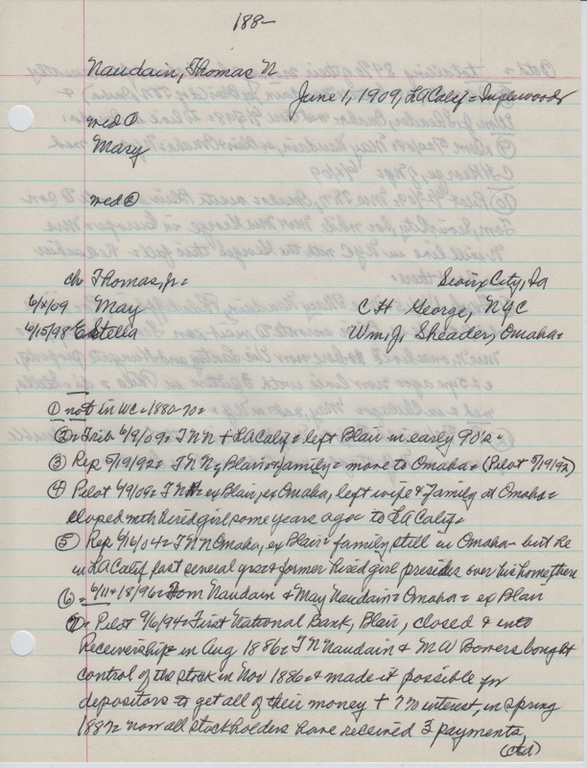 188-
Naudain, Thomas N
June 1, 1909, LA Calif = Inglewood
med ①
Mary
med ②
ch Thomas, Jr = Sioux City, Ia
6/x/09 May C H George, NYC
6/15/98 Estella Wm. J. Sheader, Omaha =
① not in WC = 1880 =
② = Trib 6/9/09 = T N N + LA Calif = left Blair in early 90's =
③ Rep 5/19/92 = T N N of Blair + family = move to Omaha = (Pilot 5/19/92)
④ Pilot 6/9/09 = T N N = ex Blair, ex Omaha, left wife & family at Omaha =
eloped with hired girl some years ago = to LA Calif =
⑤ Rep 6/16/04 = T N N Omaha, ex Blair = family still in Omaha - but he
in LA Calif past several yrs + former hired girl presides over his home there
⑥ = 6/11 + 18/96 = Tom Naudain & May Naudain = Omaha = ex Blair
⑦ = Pilot 9/6/94 = First National Bank, Blair, closed & into
Receivership in Aug 1886 = T N Naudain & M W Bowers bought
control of the stock in Nov 1886 = & made it possible for
depositors to get all of their money + 7% interest, in spring
1887 = now all stockholders have received 3 payments
(ctd)